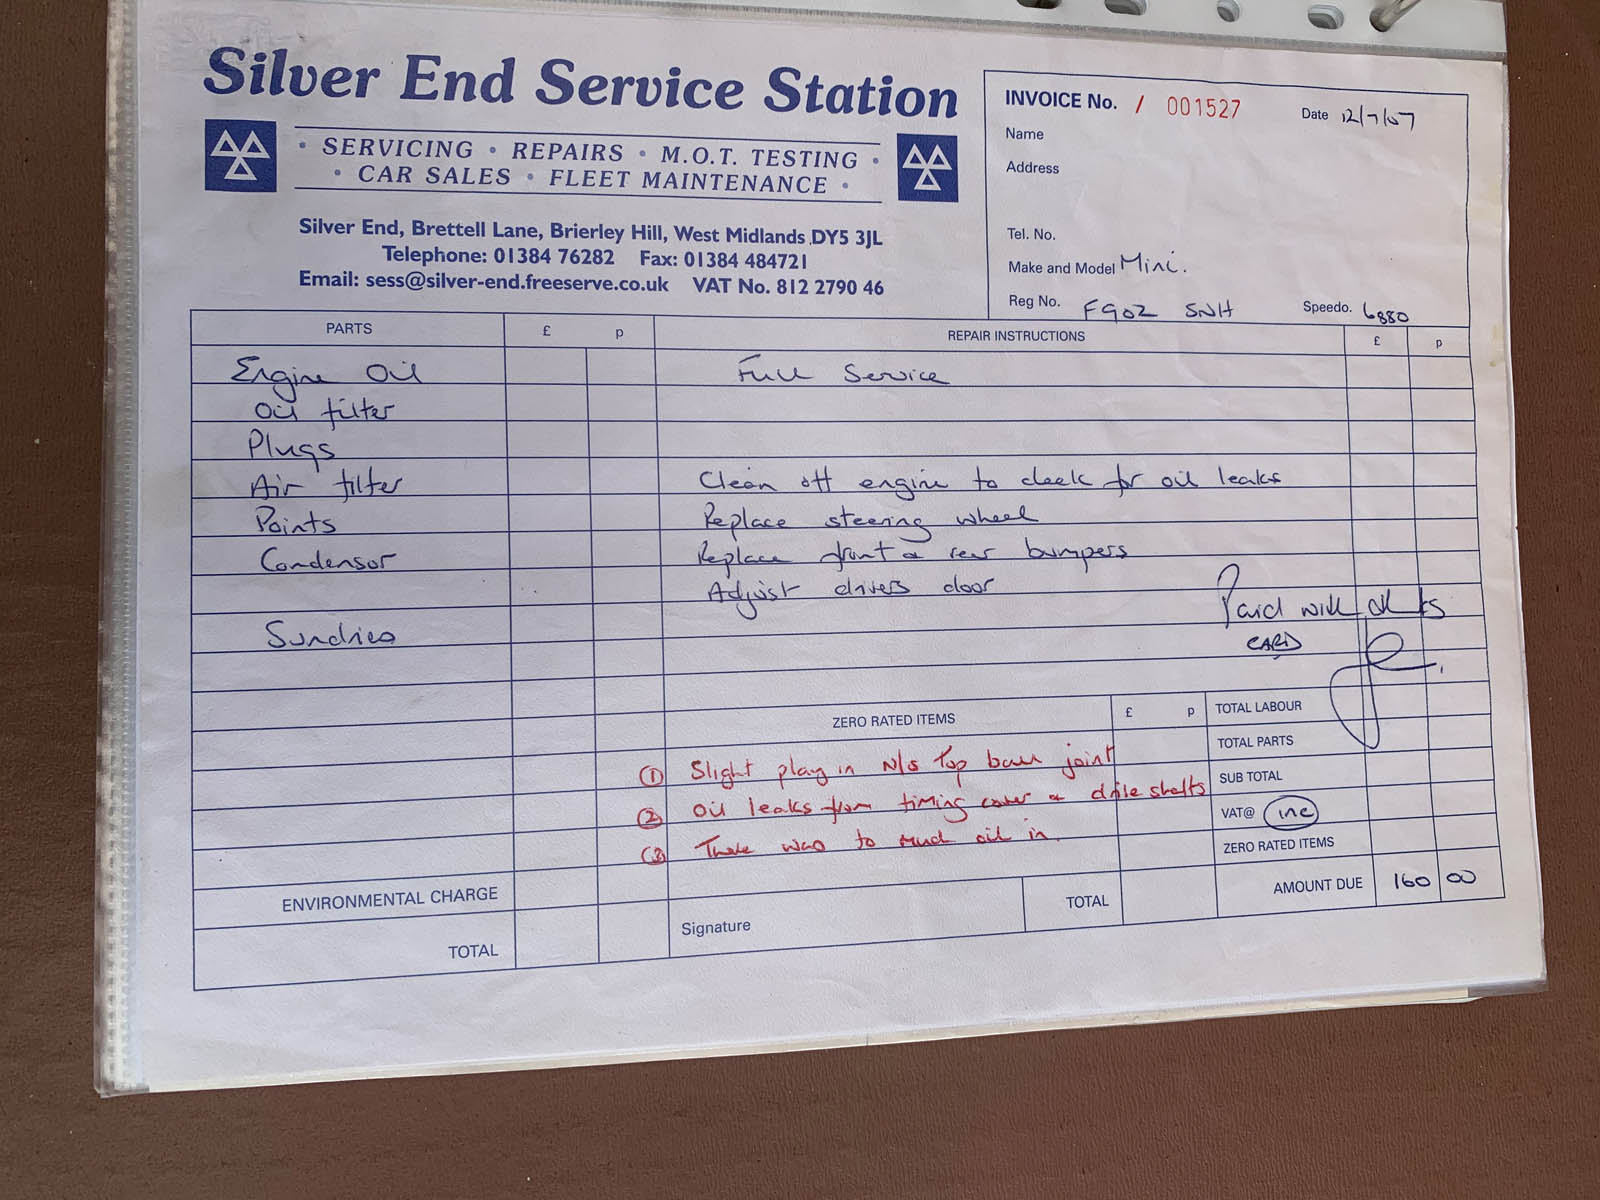 Silver End Service Station
· SERVICING · REPAIRS · M.O.T. TESTING ·
· CAR SALES · FLEET MAINTENANCE ·
Silver End, Brettell Lane, Brierley Hill, West Midlands DY5 3JL
Telephone: 01384 76282 Fax: 01384 484721
Email: sess@silver-end.freeserve.co.uk VAT No. 812 2790 46
INVOICE No. / 001527 Date 12/7/07
Name
Address
Tel. No.
Make and Model Mini.
Reg No. FG02 SNH Speedo. 6880
PARTS £ p REPAIR INSTRUCTIONS £ p
Engine Oil Full Service
Oil filter
Plugs
Air filter Clean off engine to check for oil leaks
Points Replace steering wheel
Condensor Replace front & rear bumpers
Adjust drivers door
Paid with
Sundries CARD
ZERO RATED ITEMS £ p TOTAL LABOUR
TOTAL PARTS
① Slight play in N/S Top ball joint SUB TOTAL
② Oil leaks from timing cover & drive shafts VAT@ inc
③ There was to much oil in. ZERO RATED ITEMS
ENVIRONMENTAL CHARGE AMOUNT DUE 160 00
TOTAL Signature TOTAL